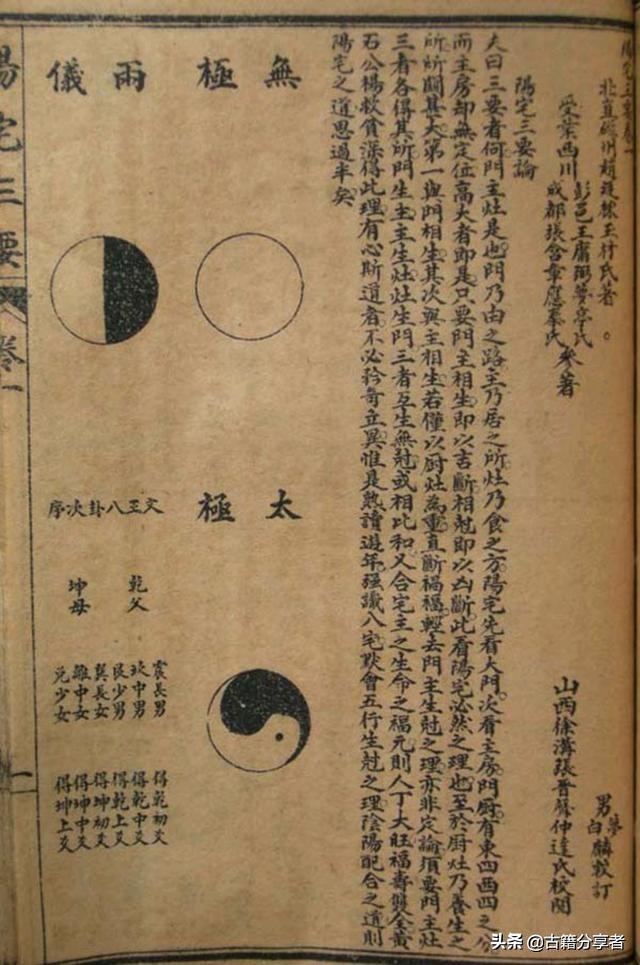 北直磁州趙廷棟玉材氏著。
男夢
白麟校訂
受業西川
彭邑王庸弼夢亭氏
成都張含章應奉氏
參著
山西徐溝張晉仲達氏校閱
陽宅三要論
夫曰三要者何門主灶是也門乃由之路主乃居之所灶乃食之方陽宅先看大門次看主房門厨有東四西四之分
而主房却無定位高大者即是只要門主相生即以吉斷相尅即以凶斷此看陽宅必然之理也至於厨灶乃養生之
所所關甚大第一與門相生其次與主相生若僅以厨灶為重直斷禍福輕去門主生尅之理亦非定論須要門主灶
三者各得其所門生主主生灶灶生門三者互生無尅或相比和又合宅主之生命之福元則人丁大旺福壽雙全黃
石公楊救貧深得此理有心斯道者不必矜奇立異惟是熟讀遊年强識八宅默會五行生尅之理陰陽配合之道則
陽宅之道思過半矣
無極
兩儀
太極
文王八卦次序
乾父
坤母
震長男 得乾初爻
坎中男 得乾中爻
艮少男 得乾上爻
巽長女 得坤初爻
離中女 得坤中爻
兌少女 得坤上爻
陽宅三要 卷一
一
头条 @古籍分享者